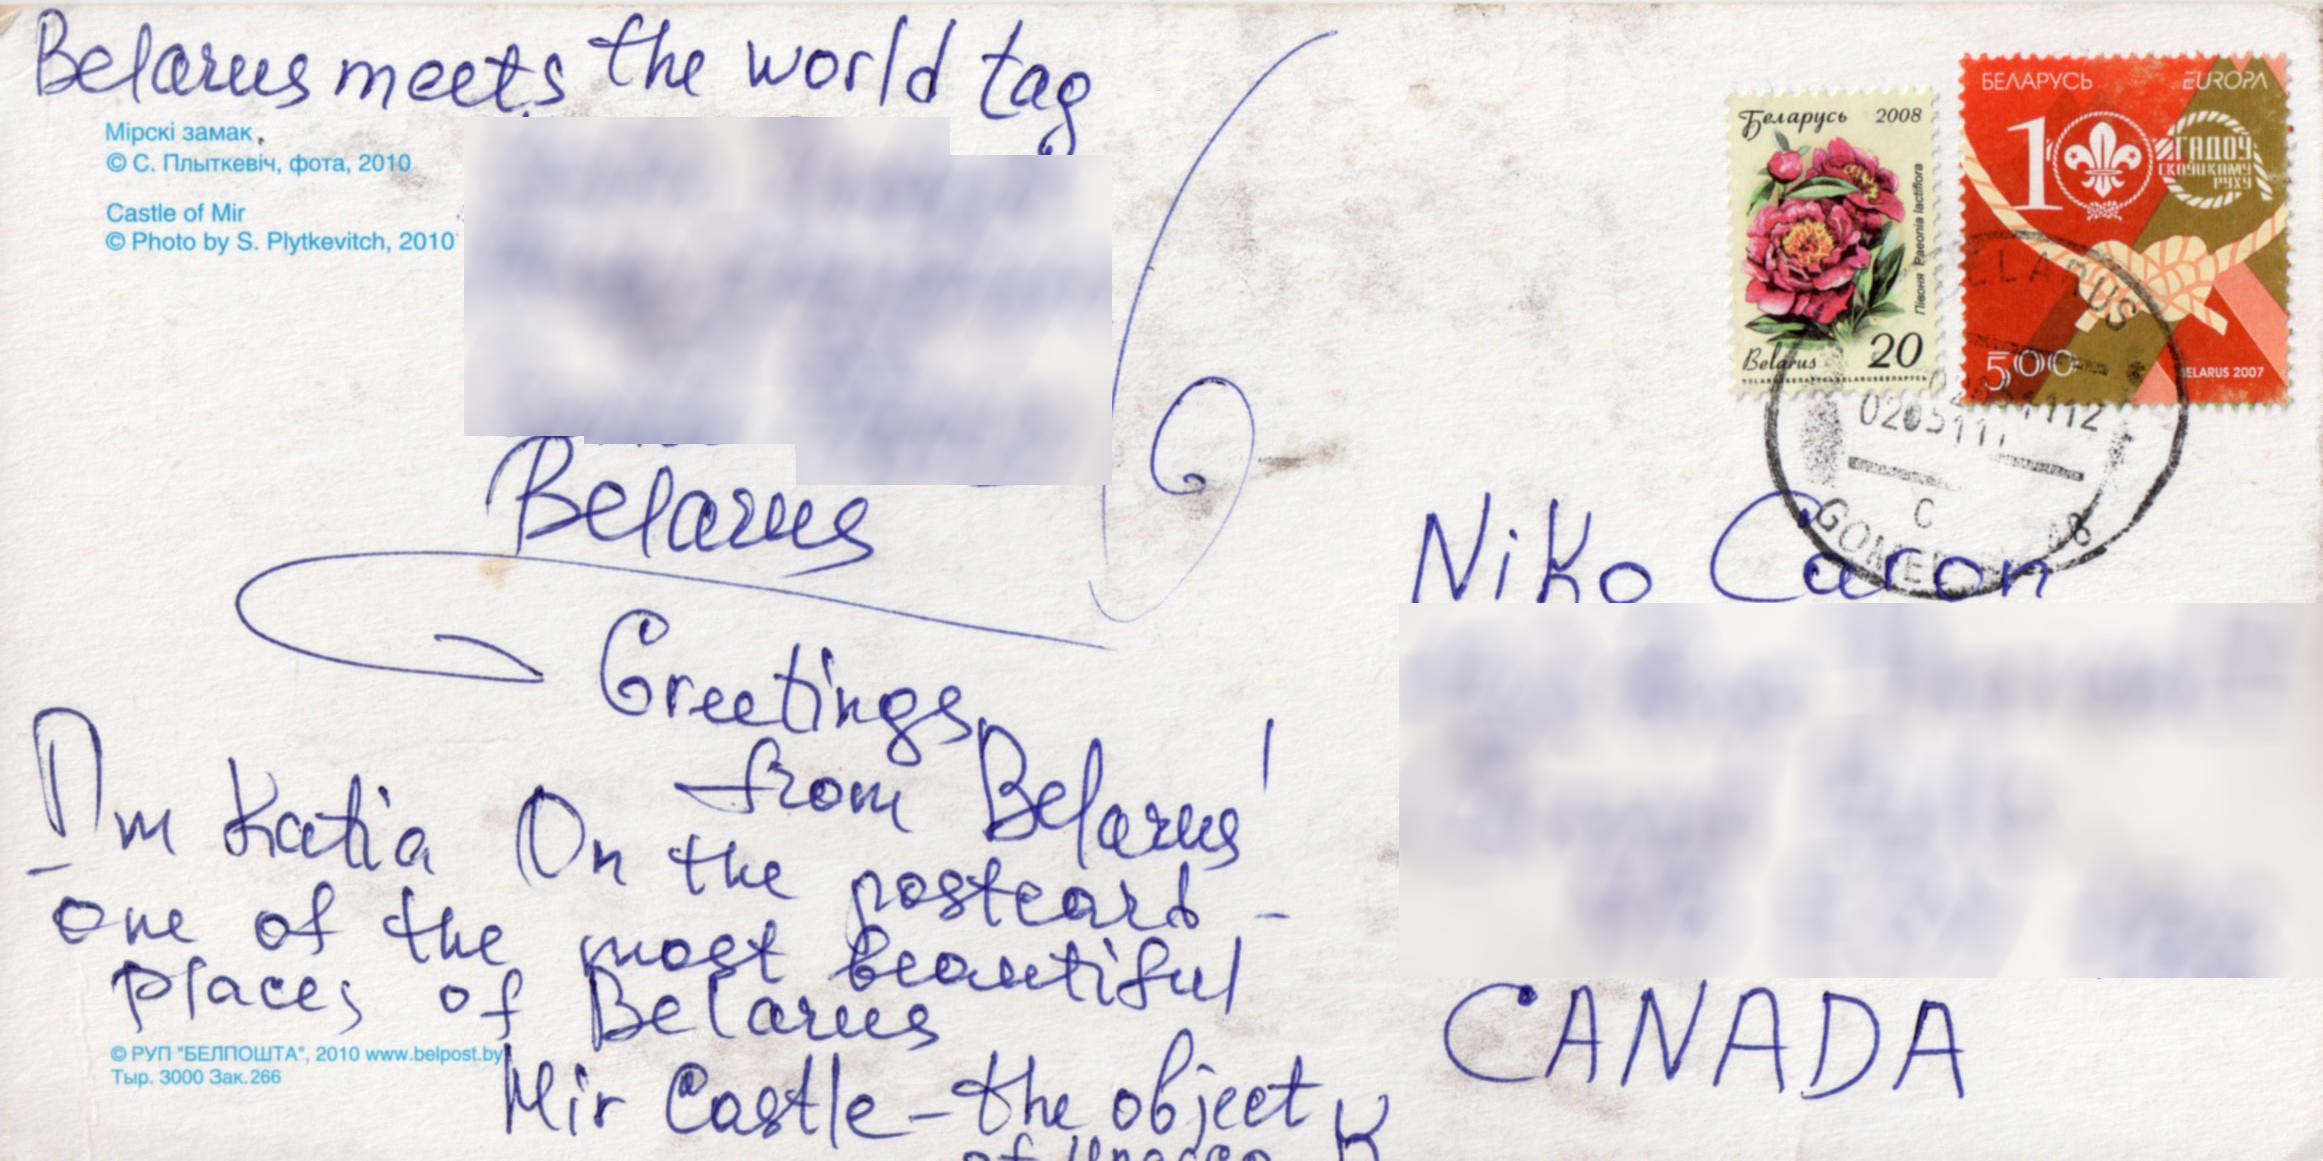 Belarus meets the world tag
Мірскі замак
© С. Плыткевіч, фота, 2010
Castle of Mir
© Photo by S. Plytkevitch, 2010
Belarus
Greetings
from Belarus!
I'm Katia On the postcard -
one of the most beautiful
places of Belarus
Mir Castle – the object
of Unesco K
© РУП "БЕЛПОШТА", 2010 www.belpost.by
Тыр. 3000 Зак.266
Беларусь 2008
Півоня Paeonia lactiflora
Belarus 20
БЕЛАРУСЬ EUROPA
100 ГАДОЎ
СКАЎЦКАМУ
РУХУ
500
BELARUS 2007
BELARUS
C
GOMEL
Niko Caron
CANADA